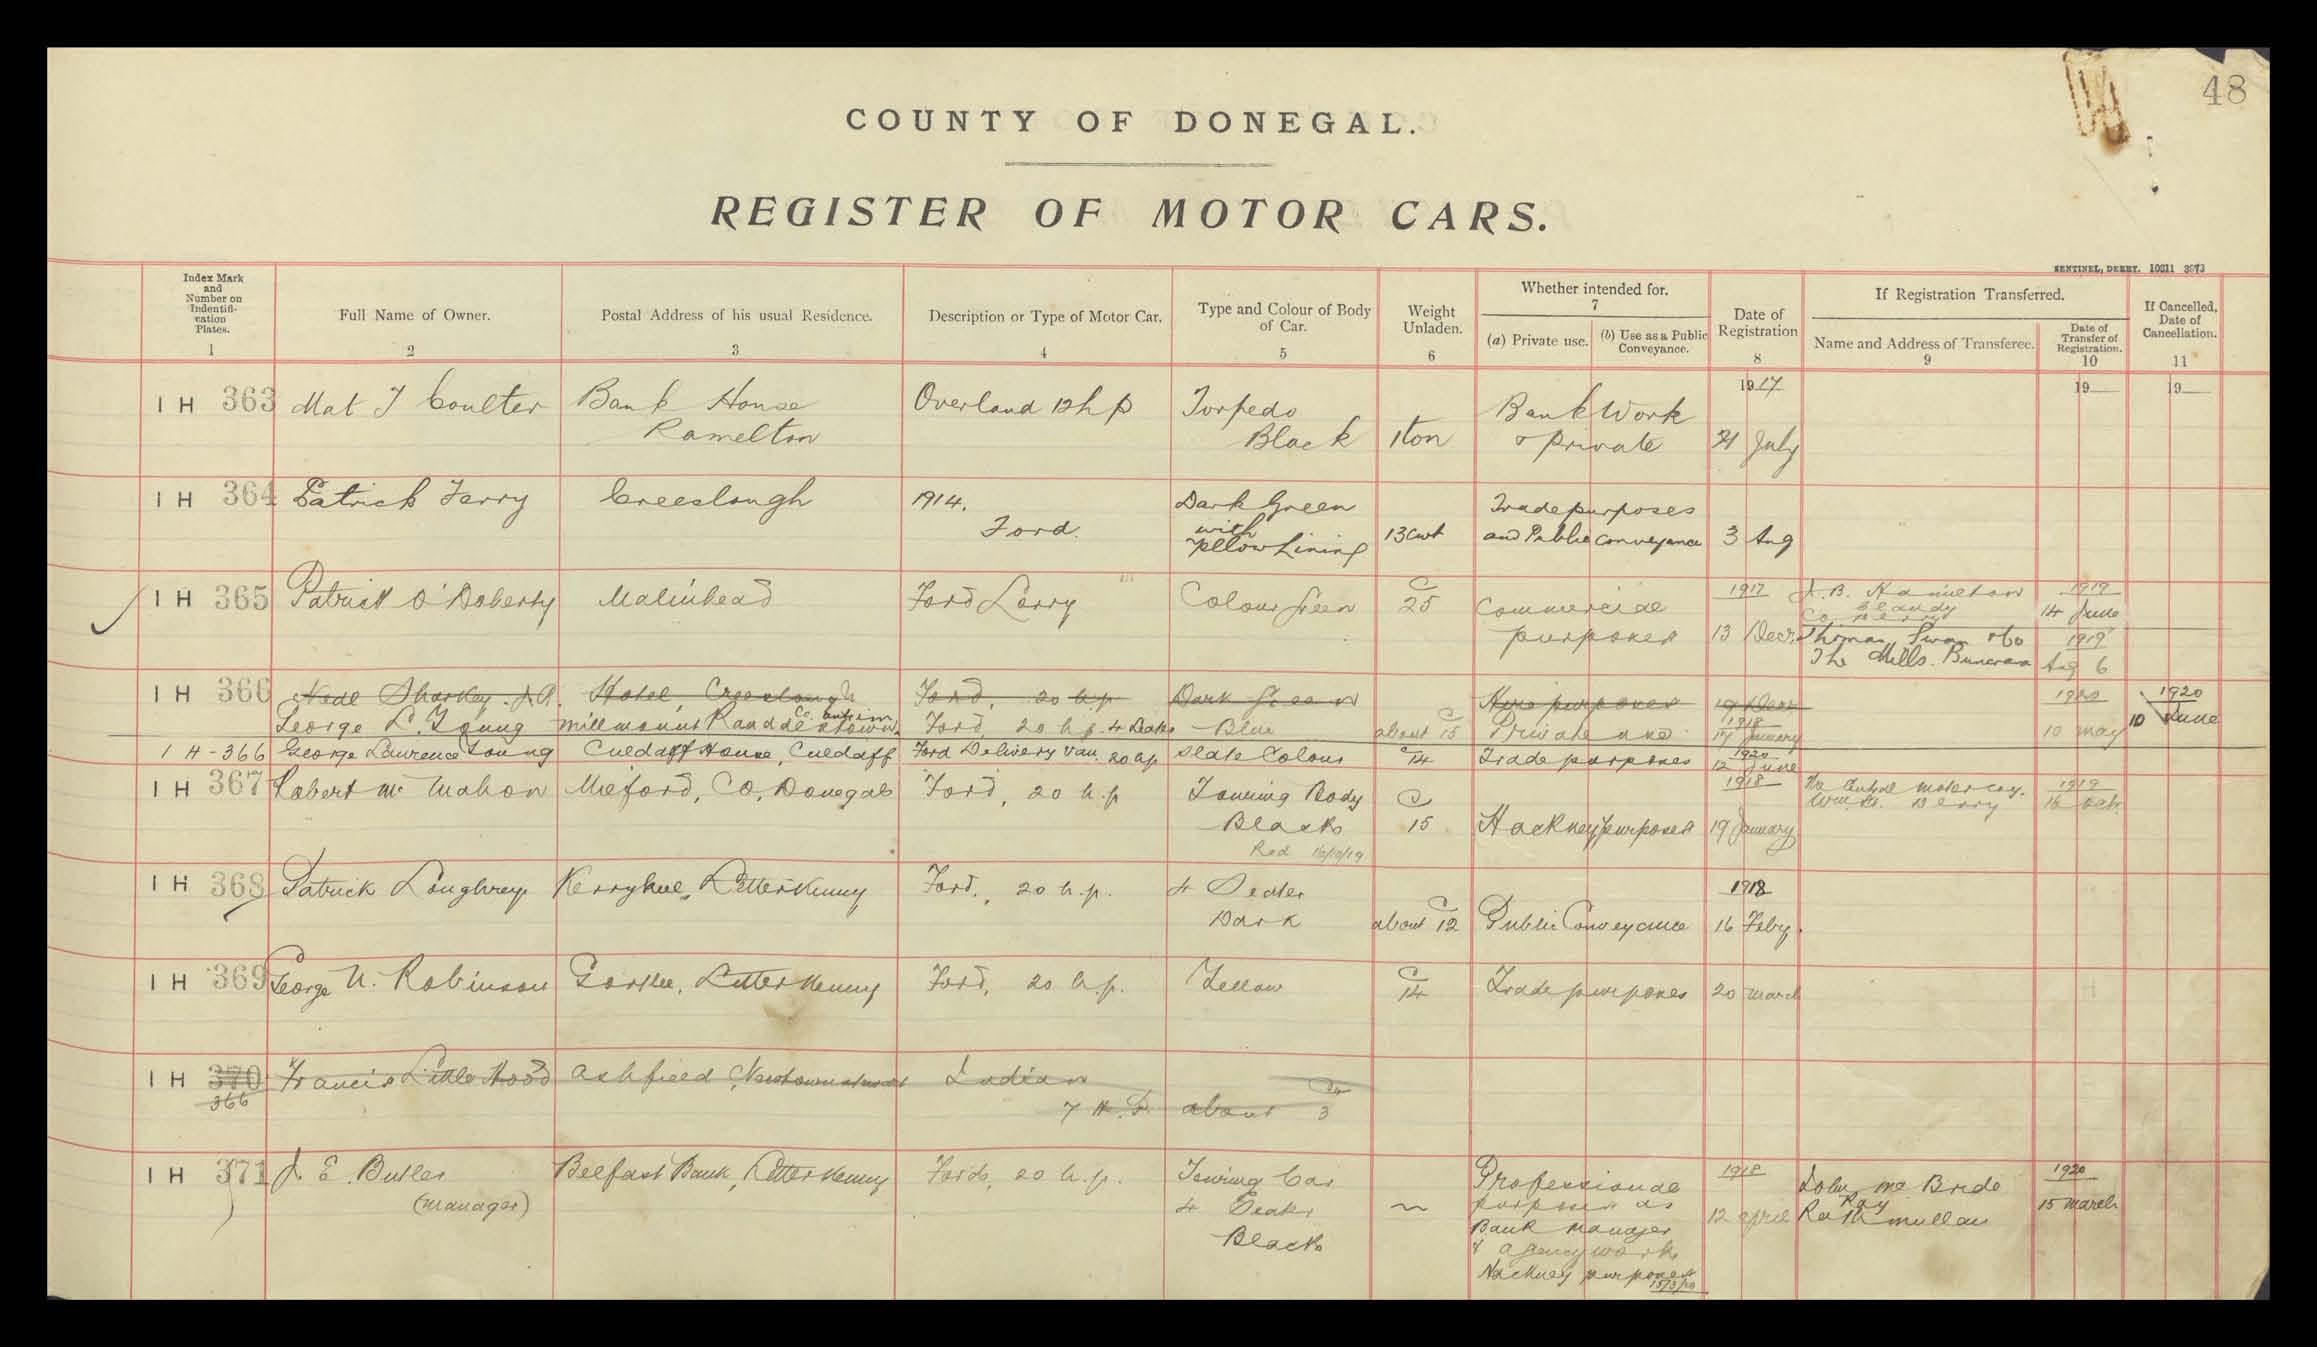 48
COUNTY OF DONEGAL.
REGISTER OF MOTOR CARS.
SENTINEL, DERRY. 10211 3973
Index Mark and Number on Indentifi-cation Plates.
1
Full Name of Owner.
2
Postal Address of his usual Residence.
3
Description or Type of Motor Car.
4
Type and Colour of Body of Car.
5
Weight Unladen.
6
Whether intended for.
7
(a) Private use.
(b) Use as a Public Conveyance.
Date of Registration
8
If Registration Transferred.
Name and Address of Transferee.
9
Date of Transfer of Registration.
10
If Cancelled, Date of Cancellation.
11
1917
19
19
I H 363 Mat J Coulter Bank House Overland 12 h p Torpedo Bank Work
Ramelton Black 1 ton & private 21 July
I H 364 Patrick Ferry Creeslough 1914. Dark Green Trade purposes
Ford. with yellow Lining 13 cwt and Public conveyance 3 Aug
I H 365 Patrick O'Doherty Malinhead Ford Lorry Colour Green C 25 Commercial 1917 J. B. Hamilton 1919
Claudy 14 June
Co. Derry
purposes 13 Decr Thomas Swan & Co 1919
The Mills. Buncrana Aug 6
I H 366 Neal Sharkey J.P. Hotel, Creeslough Ford, 20 h.p Dark Green Hire purposes 19 Decr 1920 1920
George L. Young Millmount Randalstown Co. Antrim Ford 20 h.p. 4 Seats Blue about C 15 Private use 1918 17 January 10 May 10 June
I H - 366 George Laurence Young Culdaff House, Culdaff Ford Delivery Van 20 hp Slate Colour C 14 Trade purposes 1920 12 June
I H 367 Robert Mc Mahon Milford, Co, Donegal Ford, 20 h.p Touring Body C 1918 motor coy. 1919
Derry 16 Octr
Black 15 Hackney purposes 19 January
Red 16/10/19
I H 368 Patrick Loughrey Letterkenny Ford, 20 h.p. 4 Seater 1918
Dark about C 12 Public Conveyance 16 Feby.
I H 369 George N. Robinson Gortlee, Letterkenny Ford, 20 h.p. Yellow C 14 Trade purposes 20 March
I H 370 Francis Little Hood Ashfield Indian
366 7 H.P. about 3
I H 371 J. E. Butler Belfast Bank, Letterkenny Ford, 20 h.p. Touring Car Professional 1918 John Mc Bride 1920
(manager) 4 Seats ~ purposes as 12 April Ray 15 March
Rathmullan
Black Bank Manager
& agency work
Hackney purposes
15/3/20